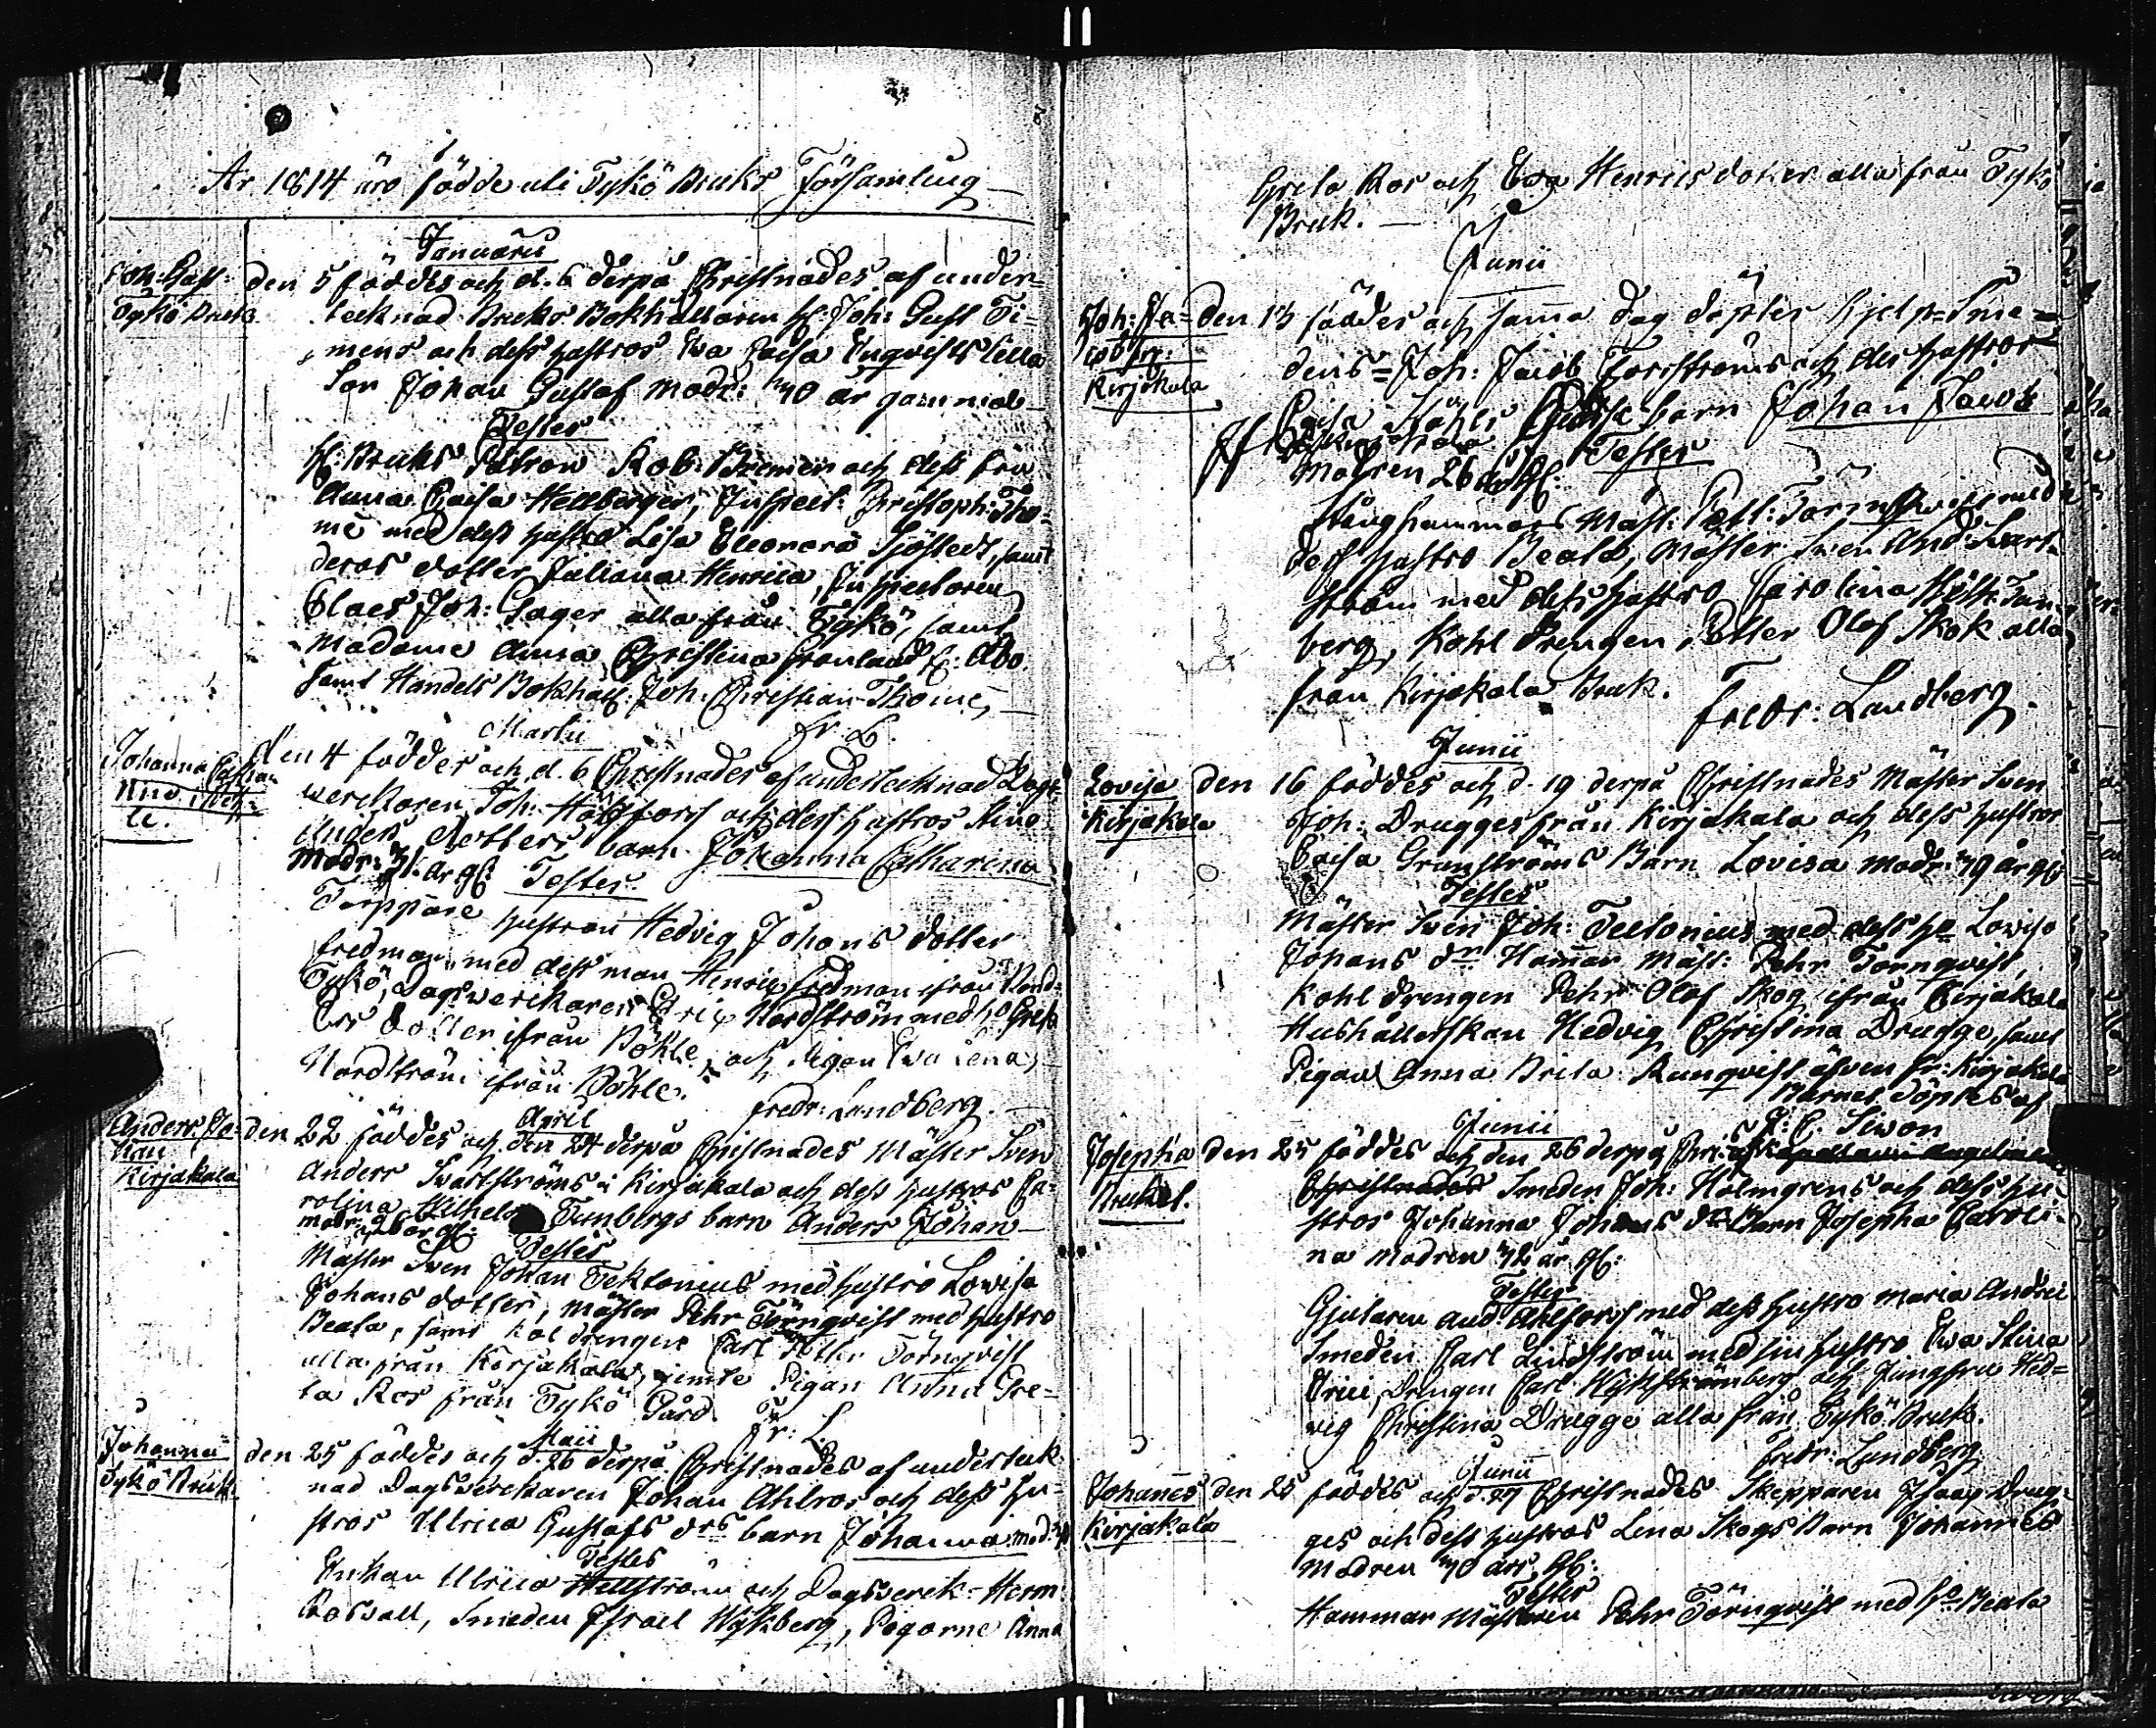 År 1814 äro födde uti Tykö Bruks Församling
Januarii
Joh: Gust: den 5 föddes och d. 6 derpå Christnades af under-
Tykö Bruk tecknad Bruks Bokhållaren H: Joh: Gust Ti-
mens och dess hustros Ewa Caisa Enqvists
Son Johan Gustaf modr: 40 år gammal
Testes
H: Bruks Patron Rob: Bremer och dess fru
Anna Caisa Hellberger, Inspect: Christoph: Tho-
mé med dess hustro Lisa Eleonora Sjöstedt, samt
deras dotter Juliana Henrica, Inspectoren
Claes Joh: Sager alla från Tykö, samt
Madame Anna Christina Granlund f: Åbo.
samt Handels Bokhåll: Joh: Christian Thomé,
Martii Fr. L.
Johanna Catha- den 4 föddes och d. 6 Christnades af undertecknad Dags-
rina werckaren Joh: och dess hustros Stina
Anders dotters barn Johanna Catharina
modr: 31 år gl: Testes
Torppare hustron Hedvig Johans dotter
Fredman med dess man Henric Fredman ifrån
Tykö, Dagswerckaren Eric Nordström med h:o Greta
Ers dotter ifrån Böhle, och Pigan Ewa Lena
Nordström ifrån Böhle.
Fredr: Lundberg.
April
Anders Jo- den 22 föddes och den 24 derpå Christnades Mäster Sven
han Anders Svartströms i Kirjakala och dess hustros Ca-
Kirjakala rolina Wilhelm Tunbergs barn Anders Johan
modr: 26 år gl: Testes
Mäster Sven Johan Tektonius med hustro Lowisa
Johans dotter, mäster Pehr Törnqvist med hustro
Beata, samt kol drengen Carl Petter Törnqvist
alla från Kirjakala, jemte Pigan Anna Gre-
ta Ros från Tykö Gård. Fr: L.
Maii
Johanna den 25 föddes och d. 26 derpå Christnades af underteck-
Tykö Bruk nad Dagswerckaren Johan Ahlros och dess hu-
stros Ulrica Gustafs drs barn Johanna
Testes
Enkan Ulrica Hellström och Dagswerck- Herm
Rosvall, Smeden Israel Wijkberg, Pigorne Anna
Greta Ros och Ewa Henrics dotter alla från Tykö
Bruk.
Junii
Joh: Ja- den 13 föddes och samma dag döptes hjelp-Sme-
cob dens Joh: Jacob Forsströms och des hustros
Kirjakala Caisa barn Johan Jacob
modren 26 år gl: Testes
Stånghammars Mäst: Pett: Törnqvist med
dess hustro Beata, Mäster Sven And: Svart-
ström med dess hustro Carolina Wilh: Tun-
berg, Kohl Drengen Petter Olof Skok alla
från Kirjakala Bruk. Fredr: Lundberg.
Junii
Lovisa den 16 föddes och d. 19 derpå Christnades Mäster Sven
Kirjakala Joh: Drugges från Kirjakala och dess hustros
Caisa Granströms Barn Lovisa modr: 39 år gl:
Testes
Mäster Sven Joh: Tectonius med dess h:o Lovisa
Johans dr Hammar Mäst: Pehr Törnqvist,
Kohl drengen Pehr Olof Skog ifrån Kirjakala
Hushållerskan Hedvig Christina Drugge, samt
Pigan Anna Brita Runqvist äfven fr: Kirjakala
Barnet döptes af
Junii J: C. Siwon
Josepha den 25 föddes och den 26 derpå Chri:
Bruket. Christnades Smeden Joh: Holmgrens och dess hu-
stros Johanna Johans drs barn Josepha Caroli-
na Modren 42 år gl:
Testes
Gjutaren And: Ahlfors med dess hustro Maria Andrie
Smeden Carl Lindström med sin hustro Ewa Stina
Drengen Carl Wijkström och Jungfru Hed-
vig Christina Drugge alla från Tykö Bruk.
Fredr: Lundberg
Junii
Johannes den 25 föddes och d. 27 Christnades Skepparen Isaac Drug-
Kirjakala ges och dess hustros Lena Skogs Barn Johannes
Modren 40 års gl:
Testes
Hammar Mästaren Pehr Törnqvist med h:o Beata